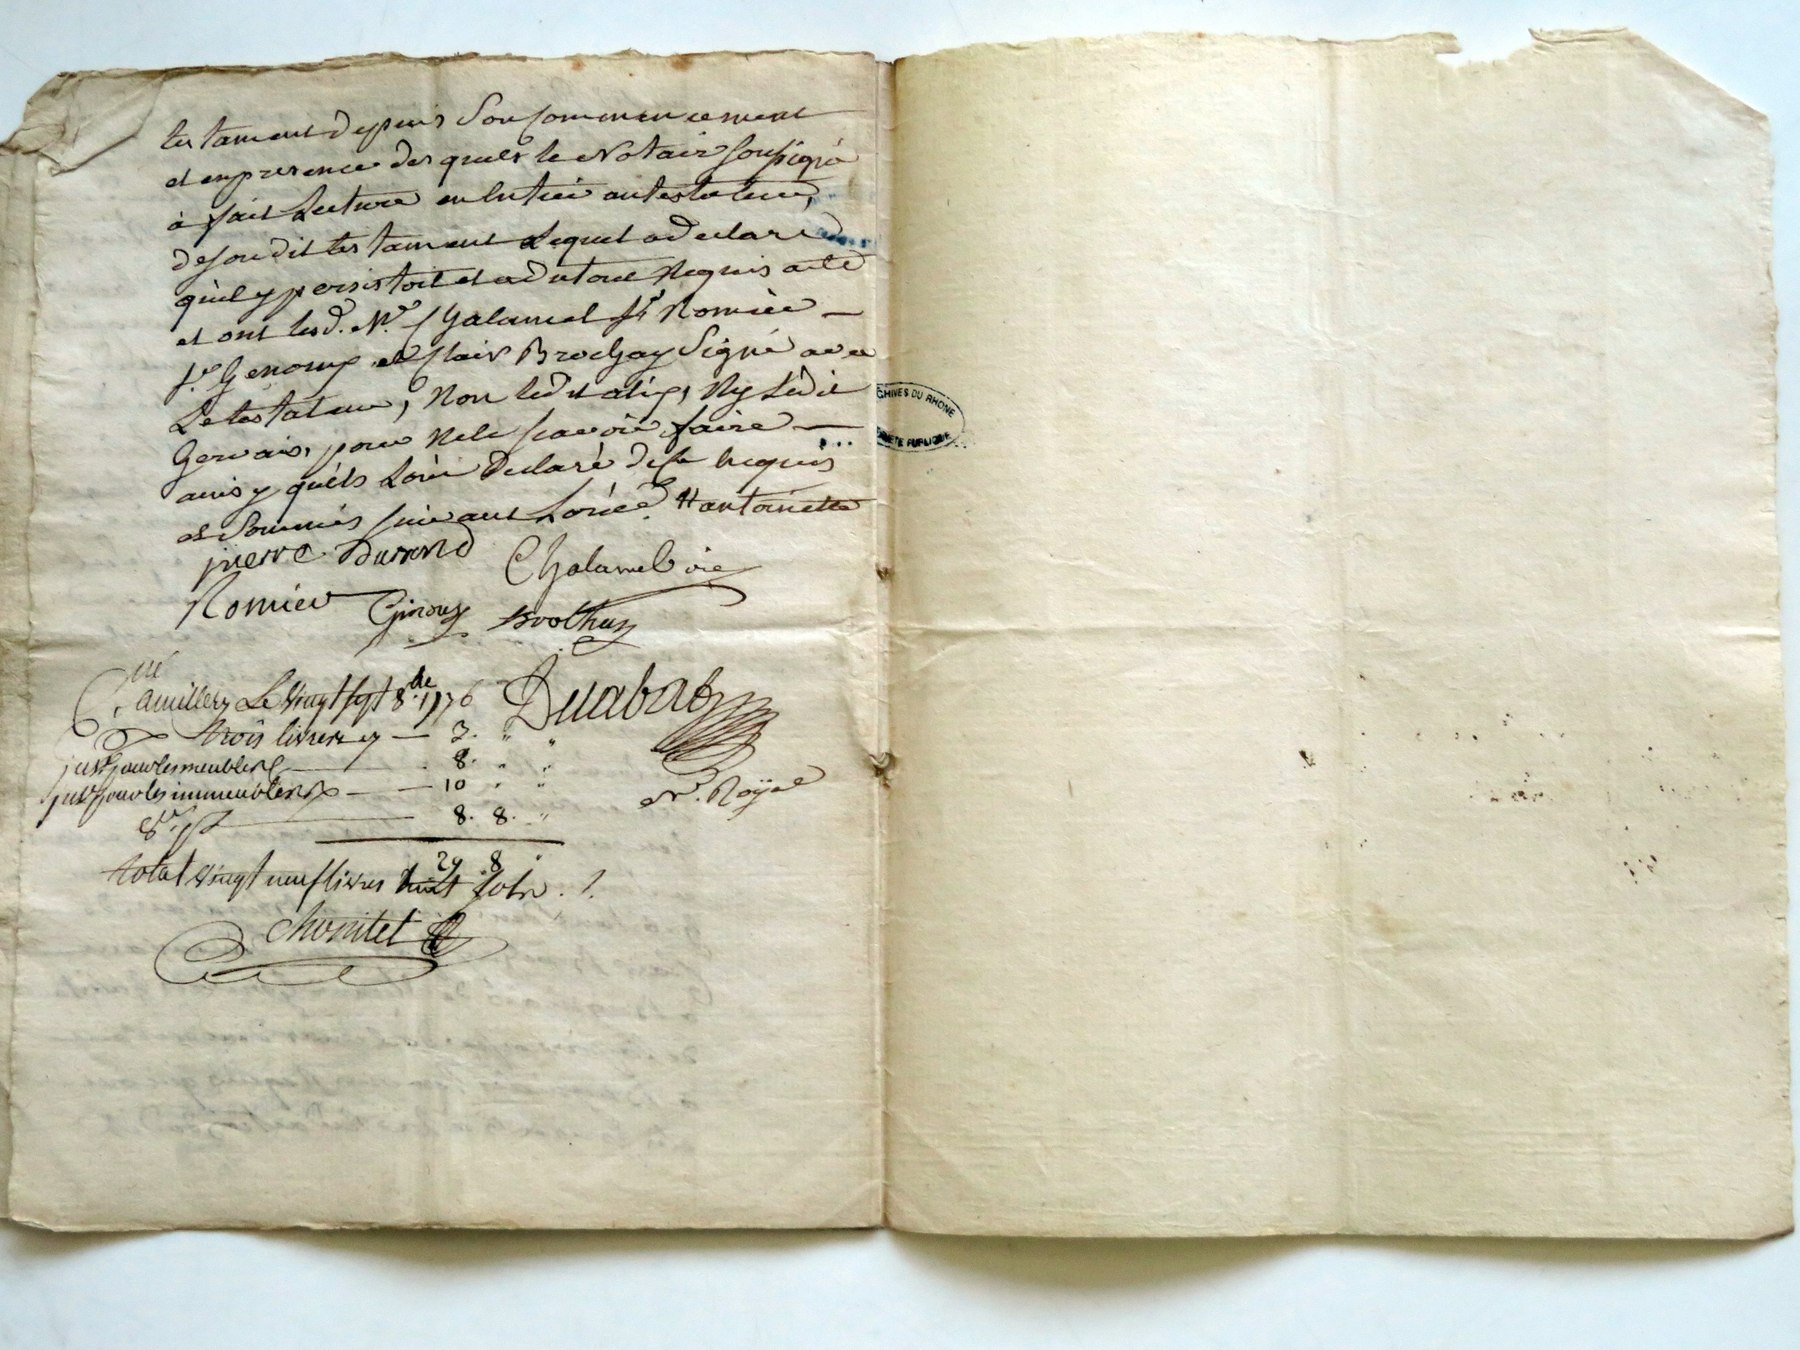 testament depuis son commencement
et en presence des quels le Notaire soussigné
à fait Lecture en Entier au testateur,
de son dit testament Lequel a declaré
qu'il y persistoit et du tout Requis acte
et ont lesd. Mre Chalamel Romieu
Genoux et Clair Brochay Signé avec
Le testateur, Non led Ny Ledit
Gervais, pour Ne le scavoir faire
ainsy qu'ils L'ont Declaré de ce Requis
et Sommés suivant Antoinette
pierre Durand Chalamel vic
Romieu Genoux Brochay
Le Vingt sept 8.bre 1776 Durabat
trois livres cy 3. " "
pour les meubles 8. " "
pour les immeubles 10 " "
8. 8. "
Nre. Royal
29 8 "
total vingt neuf livres huit sols
Chomitel
CHIVES DU RHONE
PUBLIQUE